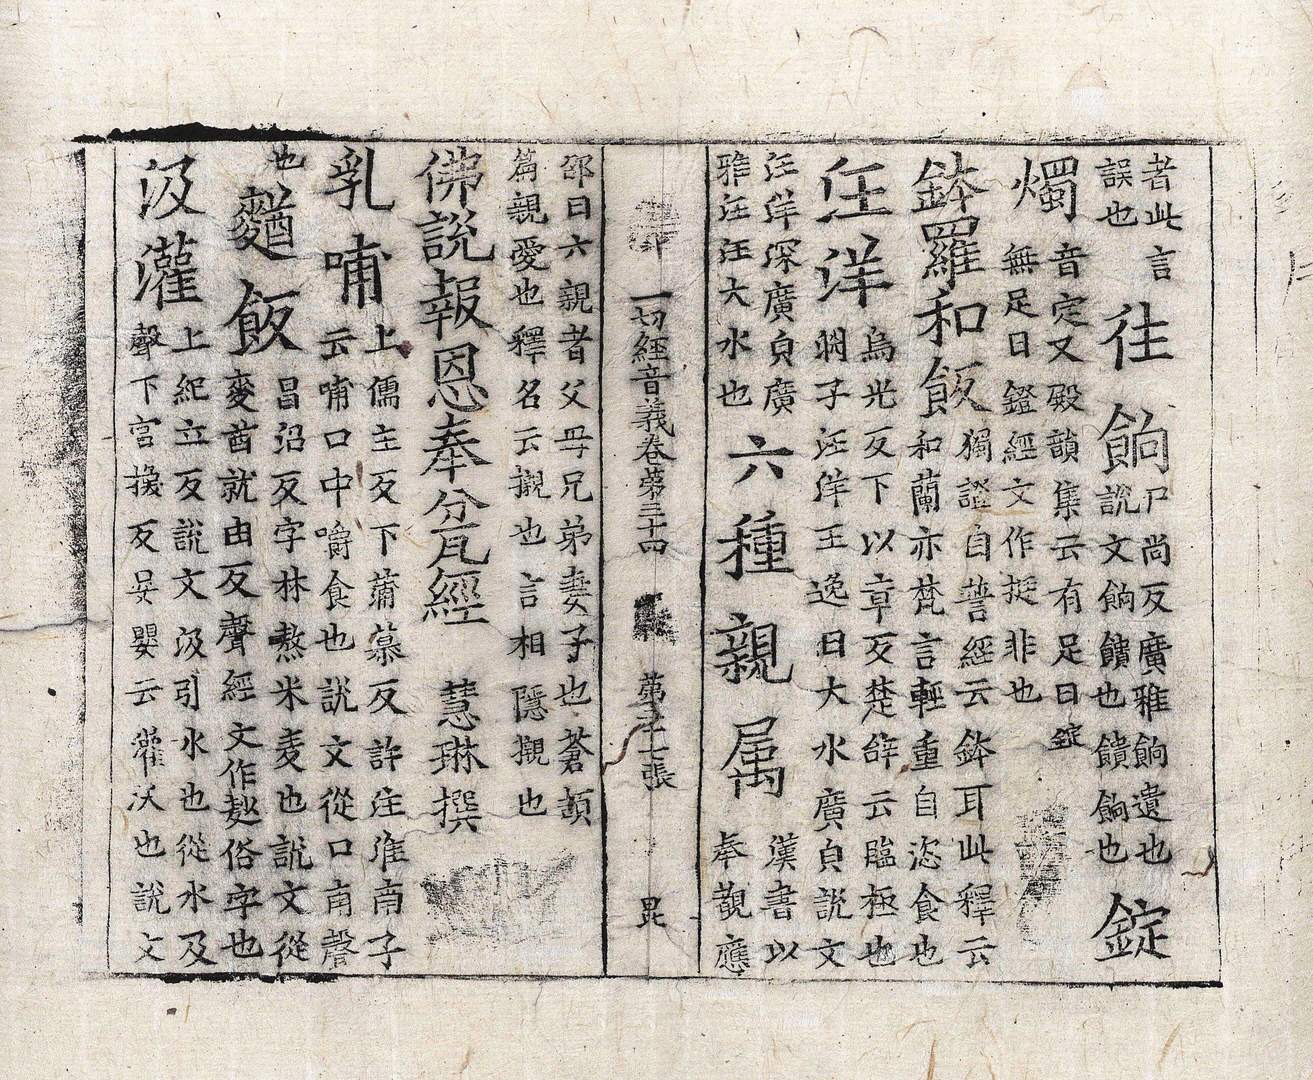 者此言
誤也
往餉
尸尚反廣雅餉遺也
說文餉饋也饋餉也
錠
燭
音定又殿韻集云有足曰錠
無足曰鐙經文作挺非也
鉢羅和飯
獨證自誓經云鉢耳此釋云
和蘭亦梵言輕重自恣食也
汪洋
烏光反下以章反楚辭云臨極也
淵子汪洋王逸曰大水廣皃說文
汪洋深廣皃廣
雅汪汪大水也
六種親屬
漢書以
奉觀應
一切經音義卷第三十四 第二十七張 昆
邵曰六親者父母兄弟妻子也蒼頡
篇親愛也釋名云櫬也言相隱櫬也
佛說報恩奉瓫經 慧琳撰
乳哺
上儒主反下蒲慕反許注淮南子
云哺口中嚼食也說文從口甫聲
也
𪍑飯
昌沼反字林熬米麦也說文從
麥酋就由反聲經文作麨俗字也
汲灌
上紀立反說文汲引水也從水及
聲下官換反吳嬰云灌沃也說文